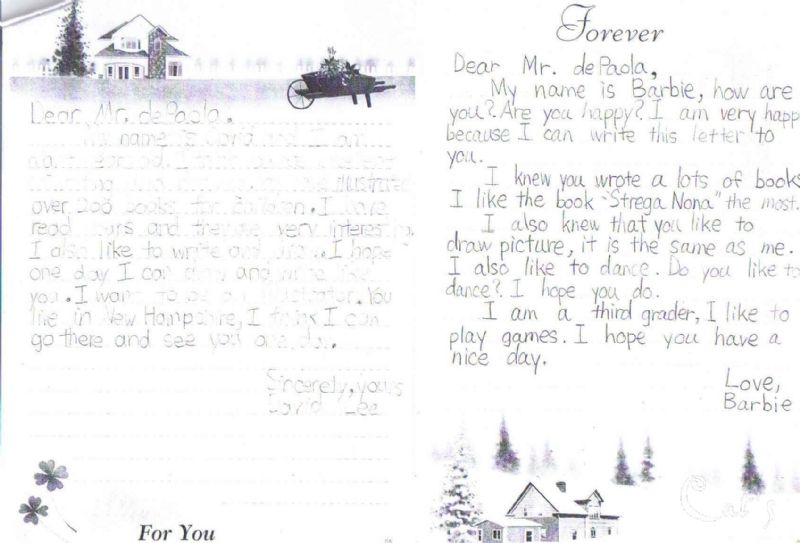 Dear, Mr. dePaola.
My name is David and I am
illustrated
over 200 books for children. I have
read yours and they are very interesting.
I also like to write and draw. I hope
one day I can draw and write like
you. I want to be an illustrator. You
live in New Hampshire, I think I can
go there and see you one day.
Sincerely, yours
David Lee
For You
Forever
Dear Mr. dePaola,
My name is Barbie, how are
you? Are you happy? I am very happ
because I can write this letter to
you.
I knew you wrote a lots of books
I like the book "Strega Nona" the most.
I also knew that you like to
draw picture, it is the same as me.
I also like to dance. Do you like to
dance? I hope you do.
I am a third grader, I like to
play games. I hope you have a
nice day.
Love,
Barbie
Cat's